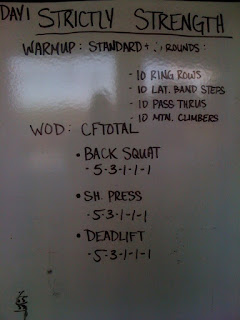 DAY 1 STRICTLY STRENGTH
WARMUP: STANDARD + ROUNDS:
- 10 RING ROWS
- 10 LAT. BAND STEPS
- 10 PASS THRUS
- 10 MTN. CLIMBERS
WOD: CFTOTAL
• BACK SQUAT
- 5-3-1-1-1
• SH. PRESS
- 5-3-1-1-1
• DEADLIFT
- 5-3-1-1-1